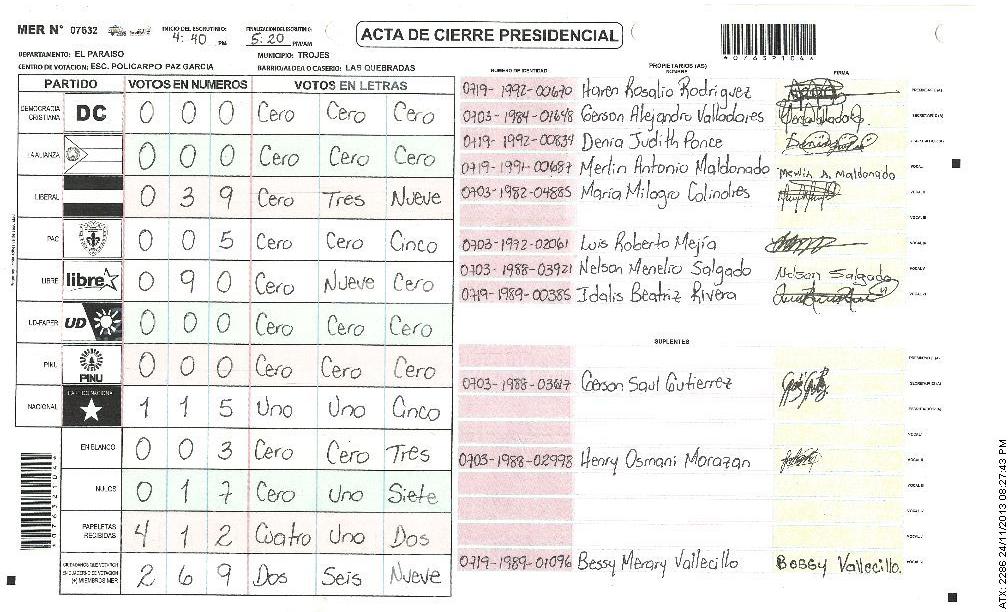 MER N° 07632 INICIO DEL ESCRUTINIO: 4:40 PM FINALIZACION DEL ESCRUTINIO: 5:20 PM/AM
ACTA DE CIERRE PRESIDENCIAL
DEPARTAMENTO: EL PARAISO MUNICIPIO: TROJES
CENTRO DE VOTACION: ESC. POLICARPO PAZ GARCIA BARRIO/ALDEA O CASERIO: LAS QUEBRADAS
PARTIDO VOTOS EN NUMEROS VOTOS EN LETRAS
DEMOCRACIA CRISTIANA DC 0 0 0 Cero Cero Cero
LA ALIANZA 0 0 0 Cero Cero Cero
LIBERAL 0 3 9 Cero Tres Nueve
PAC 0 0 5 Cero Cero Cinco
LIBRE libre 0 9 0 Cero Nueve Cero
UD-FAPER UD 0 0 0 Cero Cero Cero
PINU PINU 0 0 0 Cero Cero Cero
NACIONAL 1 1 5 Uno Uno Cinco
EN BLANCO 0 0 3 Cero Cero Tres
NULOS 0 1 7 Cero Uno Siete
PAPELETAS RECIBIDAS 4 1 2 Cuatro Uno Dos
CIUDADANOS QUE VOTARON EN CUADERNO DE VOTACION (+) MIEMBROS MER 2 6 9 Dos Seis Nueve
NUMERO DE IDENTIDAD PROPIETARIOS (AS) NOMBRE FIRMA
0719-1992-00670 Haren Rosalio Rodriguez
0703-1984-01648 Gerson Alejandro Valladores
0719-1992-00834 Denia Judith Ponce
0719-1991-00687 Merlin Antonio Maldonado Merlin A. Maldonado
0703-1982-04885 Maria Milagro Colindres
0703-1992-02061 Luis Roberto Mejía
0703-1988-03921 Nelson Menelio Salgado Nelson Salgado
0719-1989-00385 Idalis Beatriz Rivera
SUPLENTES
0703-1988-03617 Gerson Saul Gutierrez
0703-1988-02998 Henry Osmani Morazan
0719-1989-01096 Bessy Merary Vallecillo Bessy Vallecillo.
ATX: 2286 24/11/2013 08:27:43 PM